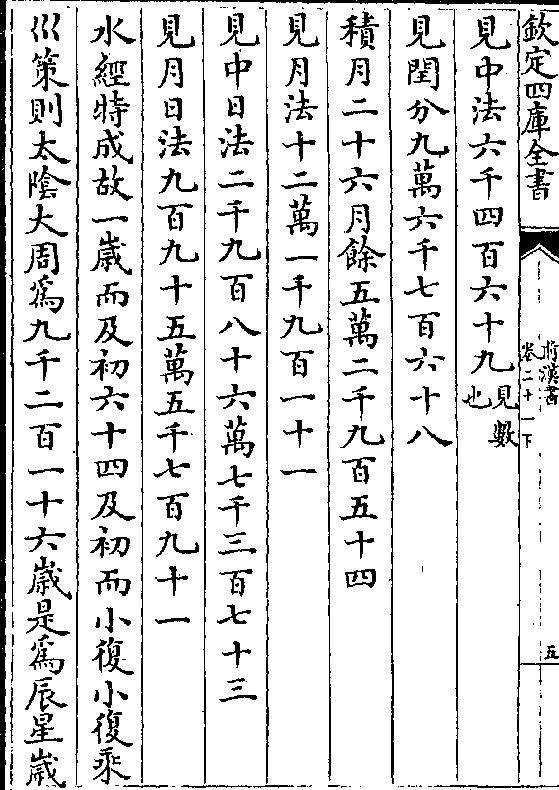 欽定四庫全書
前漢書
卷二十一下
五
見中法六千四百六十九見數也
見閏分九萬六千七百六十八
積月二十六月餘五萬二千九百五十四
見月法十二萬一千九百一十一
見中日法二千九百八十六萬七千三百七十三
見月日法九百九十五萬五千七百九十一
水經特成故一歲而及初六十四及初而小復小復乘
巛策則太陰大周爲九千二百一十六歲是爲辰星歲